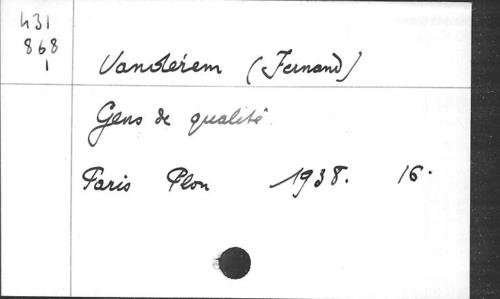 431
868
1
Vandérem (Fernand)
Gens de qualité.
Paris Plon 1938. 16.